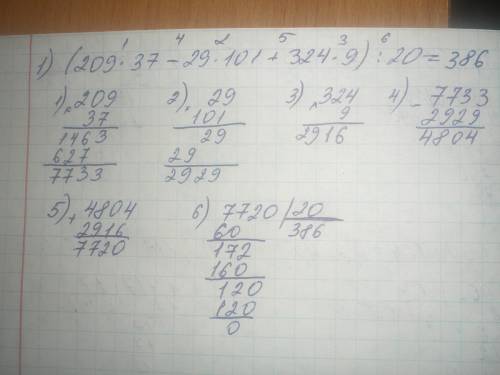 1 4 2 5 3 6
1) (209·37 - 29·101 + 324·9) : 20 = 386
1) × 209
37
1463
627
7733
2) × 29
101
29
29
2929
3) × 324
9
2916
4) - 7733
2929
4804
5) + 4804
2916
7720
6) 7720 | 20
60 386
172
160
120
120
0